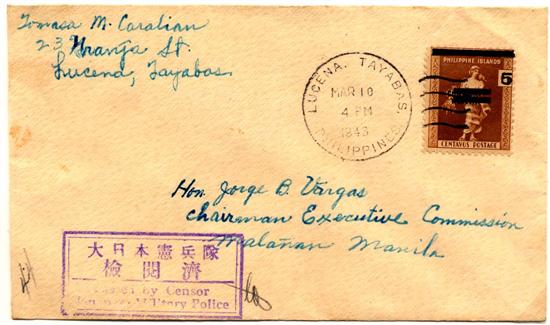 Tomasa M. Caralian
23 Granja St.
Lucena, Tayabas
LUCENA, TAYABAS,
MAR 10
4 PM
1943
PHILIPPINES
PHILIPPINE ISLANDS
5
CENTAVOS POSTAGE
Hon. Jorge B. Vargas
Chairman Executive Commission
Malañan Manila
大日本憲兵隊
檢閲濟
Passed by Censor
Japanese Military Police